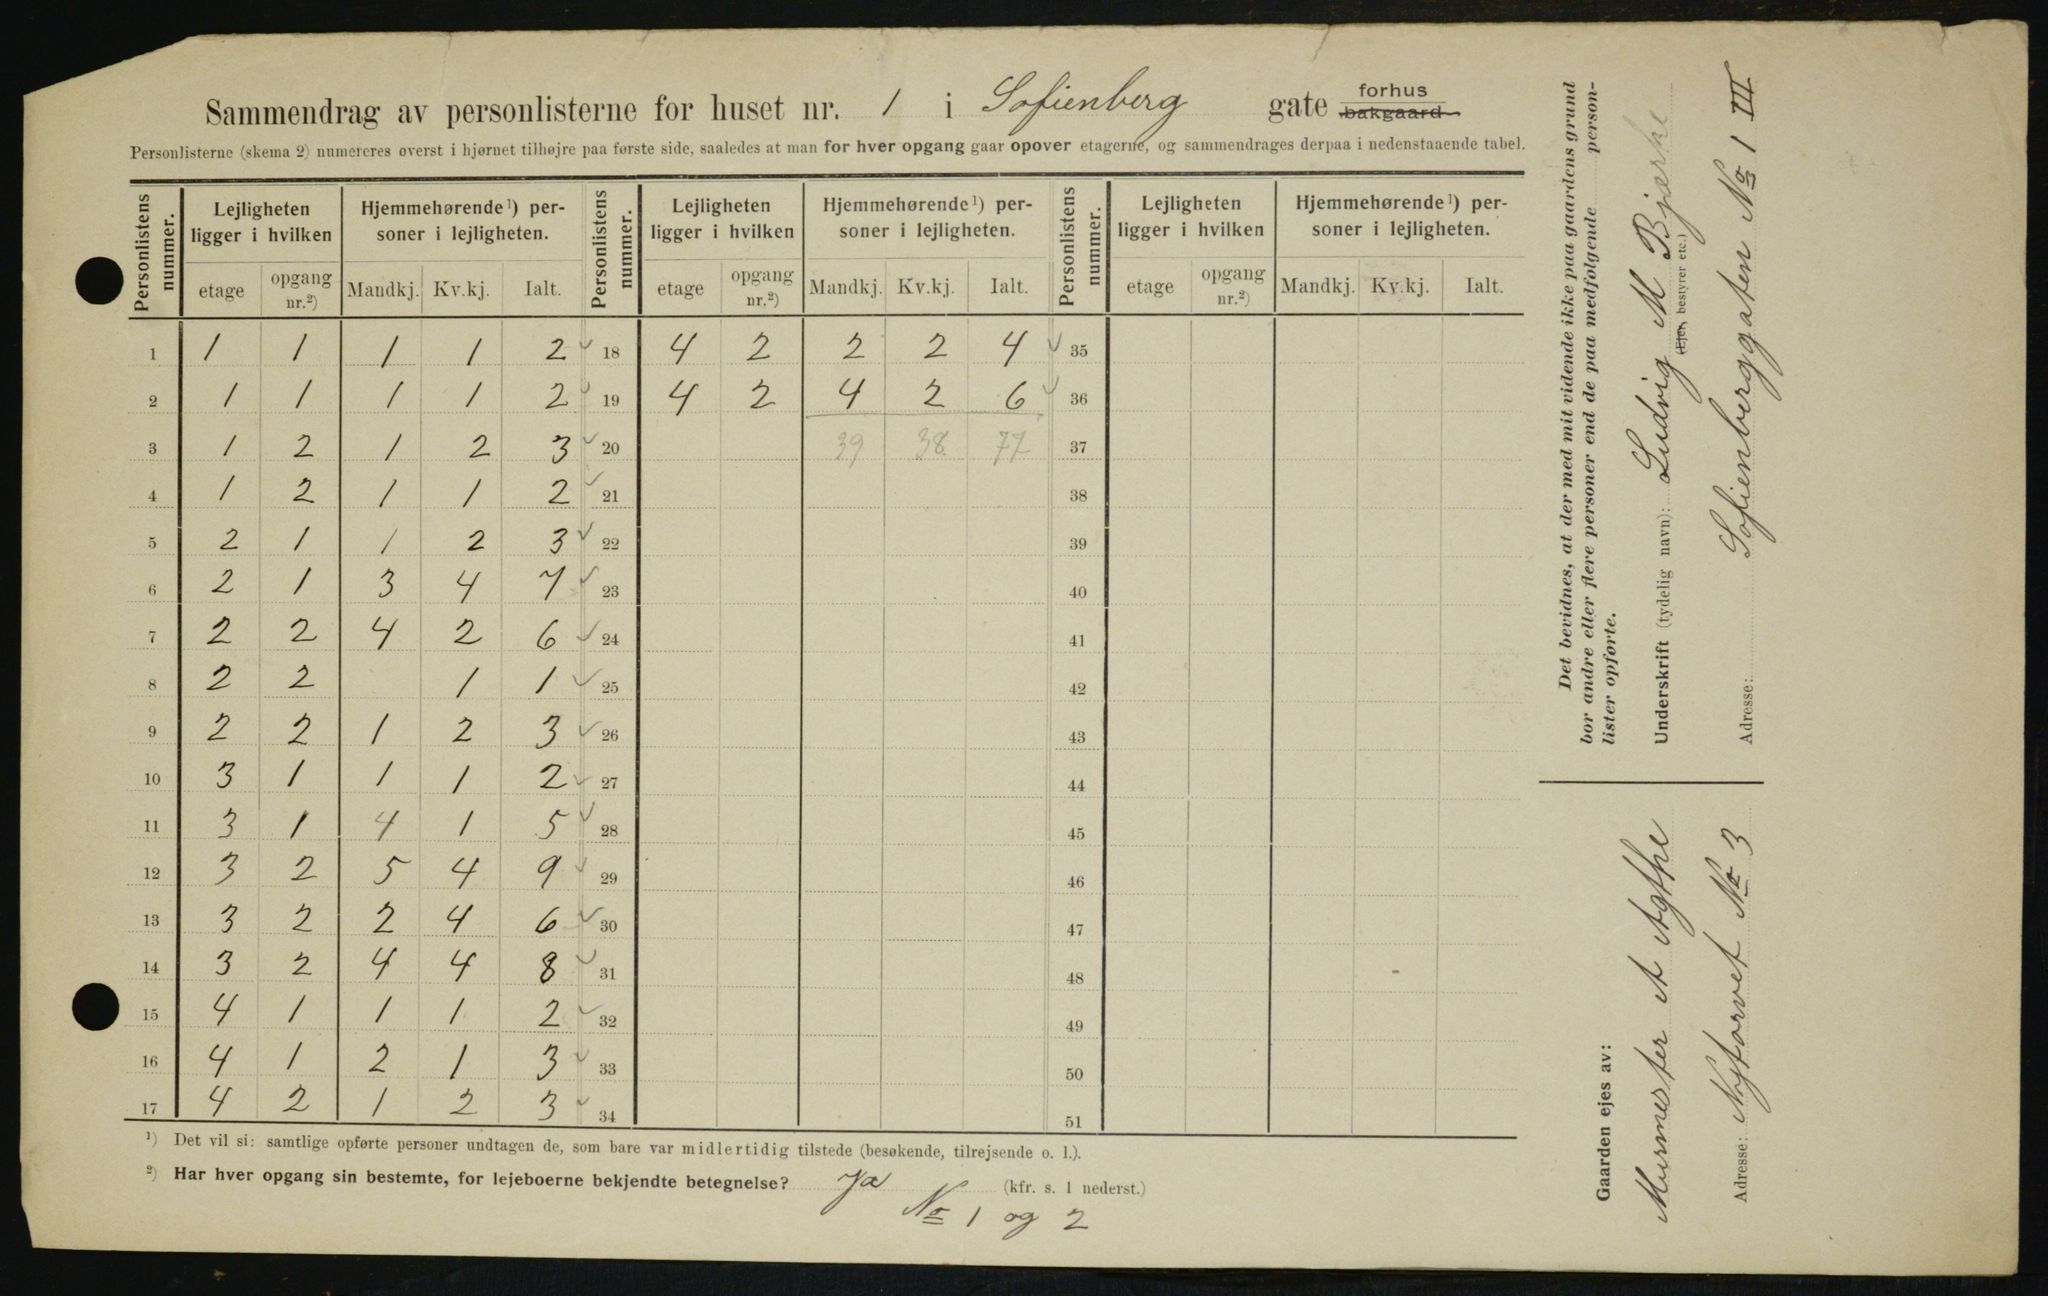 Sammendrag av personlisterne for huset nr. 1 i Sofienberg gate forhus
bakgaard
Personlisterne (skema 2) numereres øverst i hjørnet tilhøjre paa første side, saaledes at man for hver opgang gaar opover etagerne, og sammendrages derpaa i nedenstaaende tabel.
Personlistens nummer. Lejligheten ligger i hvilken Hjemmehørende ¹) personer i lejligheten. Personlistens nummer. Lejligheten ligger i hvilken Hjemmehørende ¹) personer i lejligheten. Personlistens nummer. Lejligheten ligger i hvilken Hjemmehørende ¹) personer i lejligheten.
etage opgang nr.²) Mandkj. Kv.kj. Ialt. etage opgang nr.²) Mandkj. Kv.kj. Ialt. etage opgang nr.²) Mandkj. Kv.kj. Ialt.
1 1 1 1 1 2 ✓ 18 4 2 2 2 4 ✓ 35
2 1 1 1 1 2 ✓ 19 4 2 4 2 6 ✓ 36
3 1 2 1 2 3 ✓ 20 39 38 77 37
4 1 2 1 1 2 ✓ 21 38
5 2 1 1 2 3 ✓ 22 39
6 2 1 3 4 7 ✓ 23 40
7 2 2 4 2 6 ✓ 24 41
8 2 2 1 1 ✓ 25 42
9 2 2 1 2 3 ✓ 26 43
10 3 1 1 1 2 ✓ 27 44
11 3 1 4 1 5 ✓ 28 45
12 3 2 5 4 9 ✓ 29 46
13 3 2 2 4 6 ✓ 30 47
14 3 2 4 4 8 ✓ 31 48
15 4 1 1 1 2 ✓ 32 49
16 4 1 2 1 3 ✓ 33 50
17 4 2 1 2 3 ✓ 34 51
¹) Det vil si: samtlige opførte personer undtagen de, som bare var midlertidig tilstede (besøkende, tilrejsende o. l.).
²) Har hver opgang sin bestemte, for lejeboerne bekjendte betegnelse? Ja (kfr. s. 1 nederst.)
No 1 og 2
Det bevidnes, at der med mit vidende ikke paa gaardens grund
bor andre eller flere personer end de paa medfølgende person-
lister opførte.
Underskrift (tydelig navn): Ludvig M Bjerke
(Ejer, bestyrer etc.)
Adresse: Sofienberggaten No 1 III
Gaarden ejes av:
Murmester A Agthe
Adresse: Nytorvet No 3